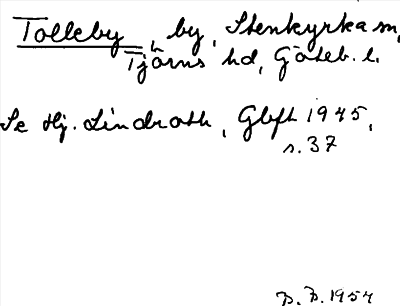 Tolleby, by, Stenkyrka sn,
Tjörns hd, Göteb. l.
Se Hj. Lindroth, Gbft 1945,
s. 37
B. B. 1954